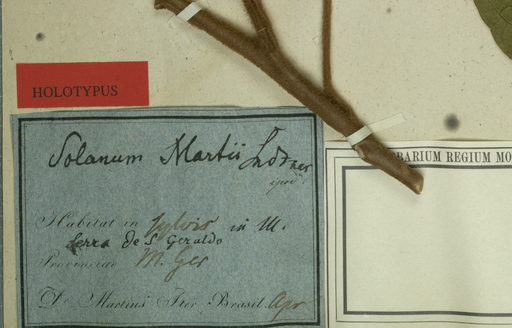 HOLOTYPUS
Solanum Martii Sndtner
Habitat in sylvis in M.
Serra de S. Geraldo
Provinciae M. Ger
Dr. Martius Iter Brasil. Apr
BARIUM REGIUM MO